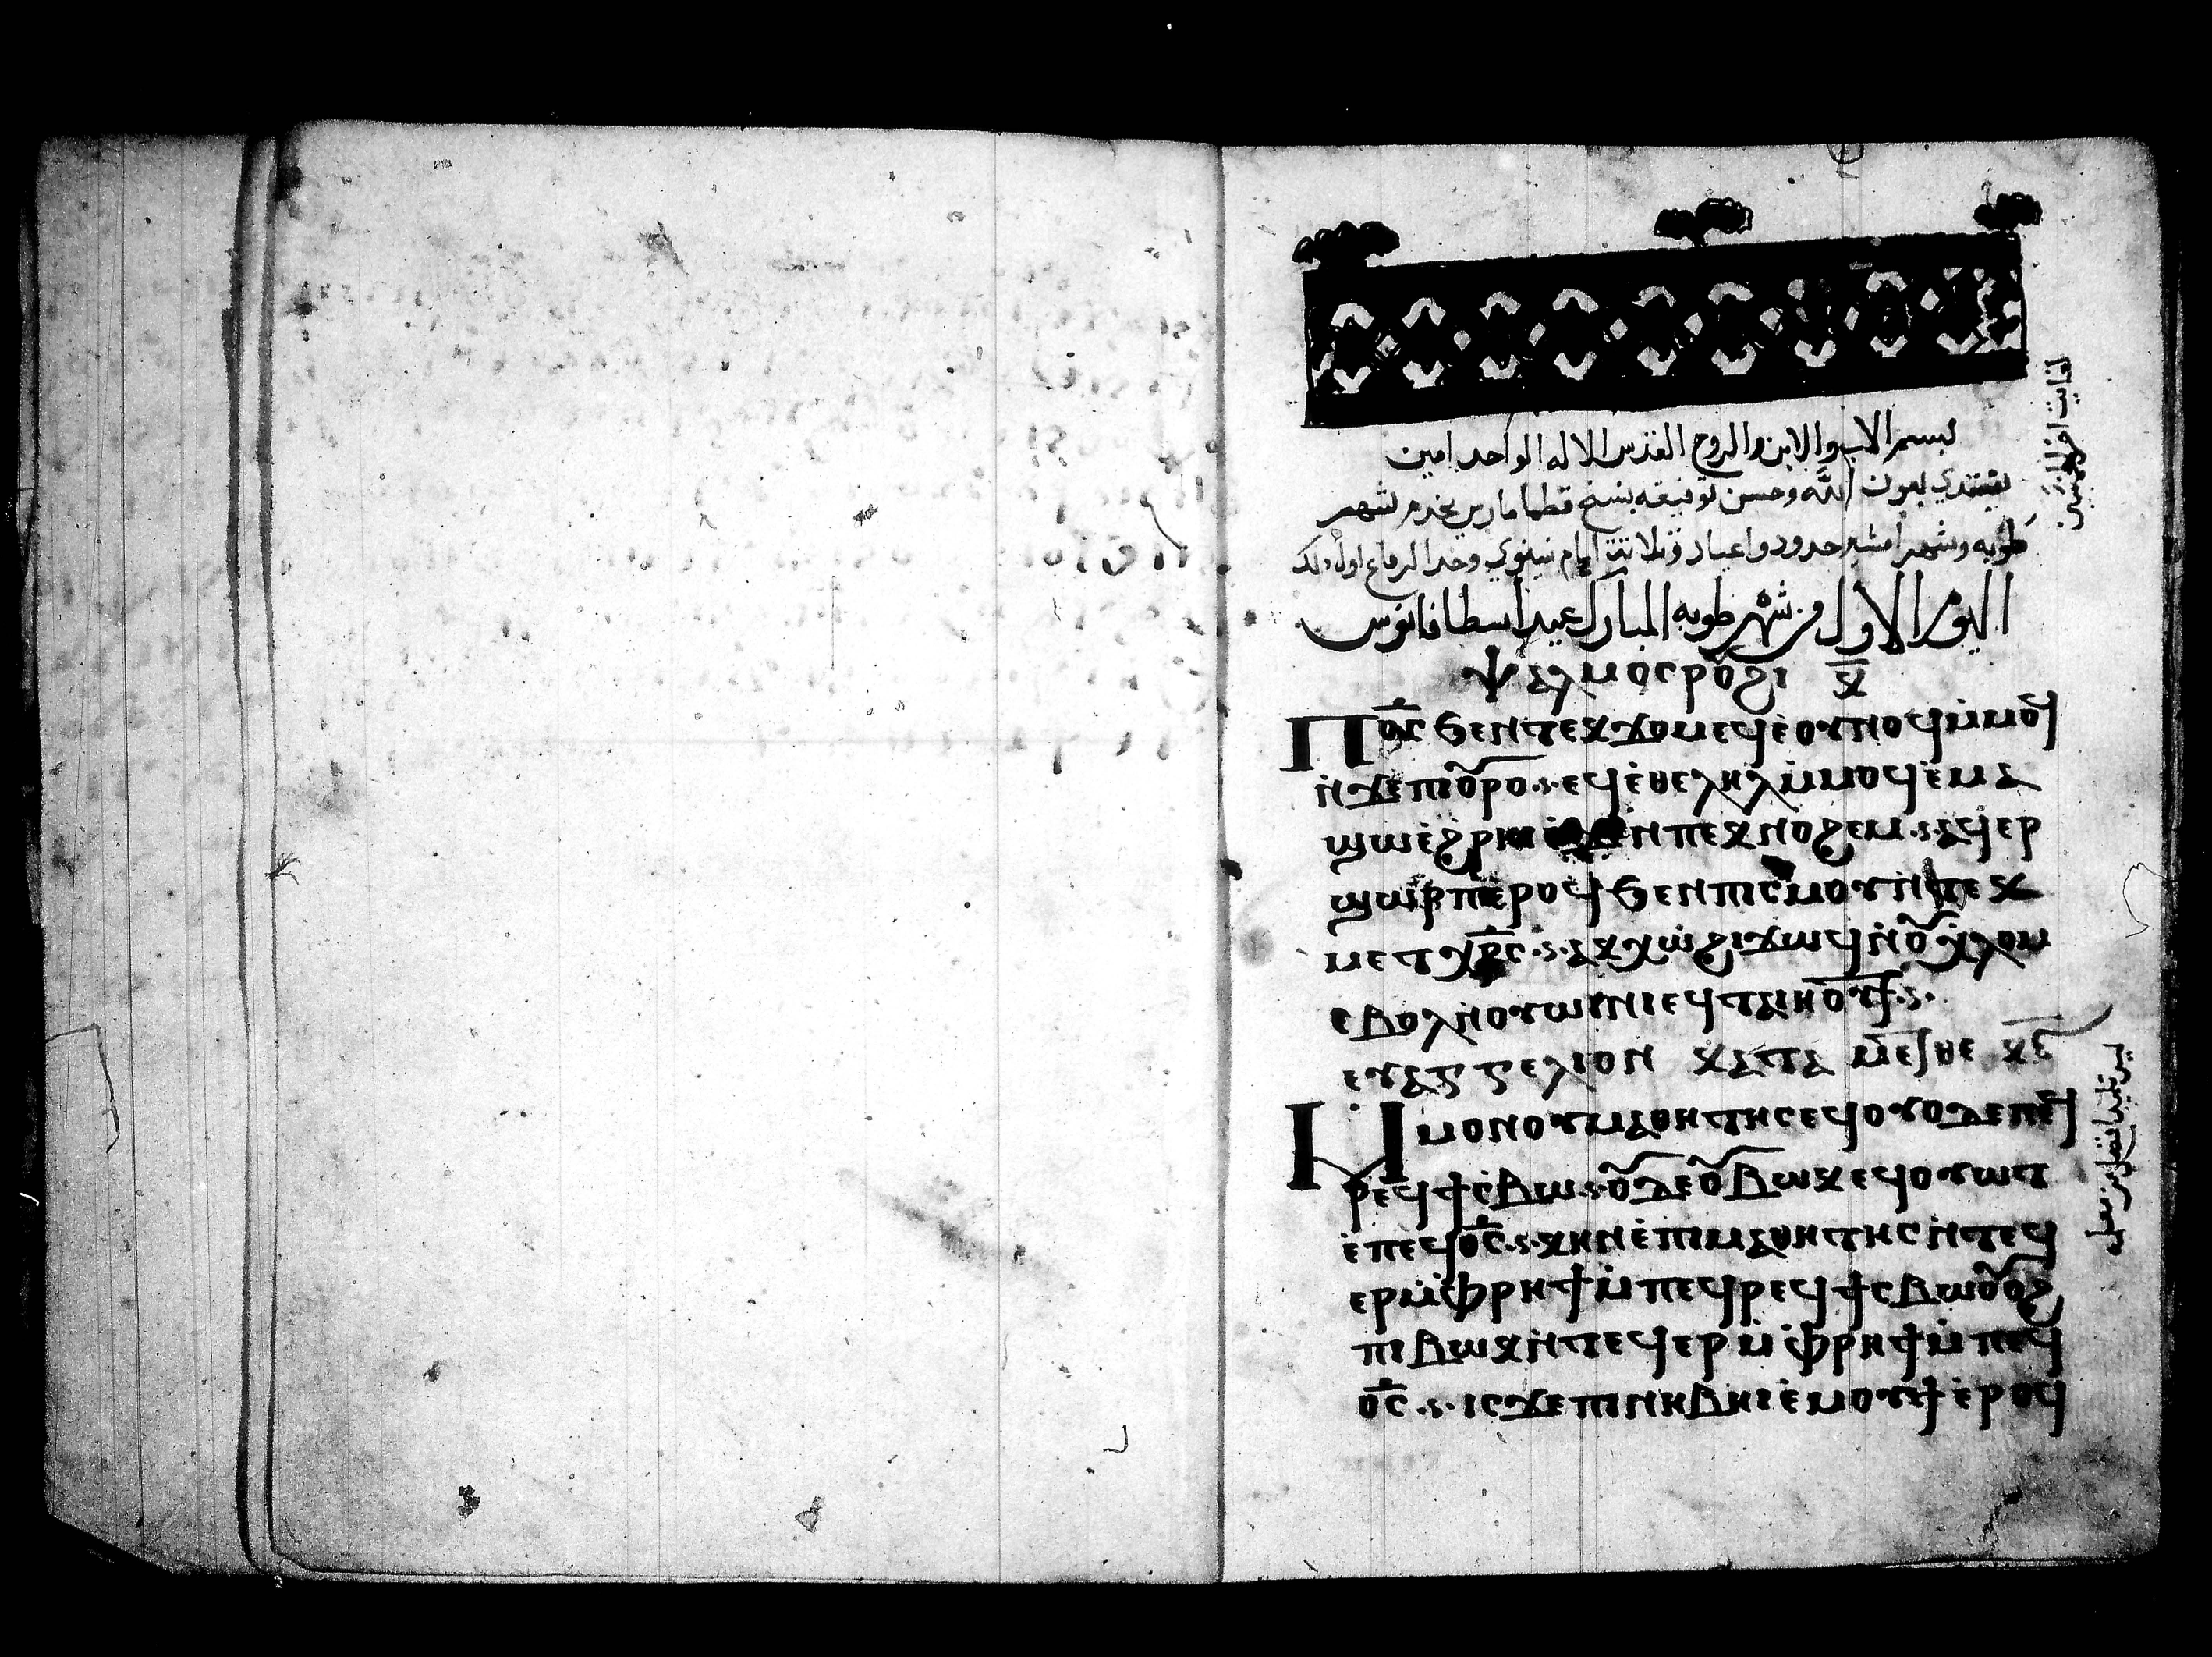 بسم الاب والابن والروح القدس الاله الواحد امين
نبتدي بعون الله وحسن توفيقه بنسخ قطمارس يخدم لشهر
طوبه وشهر امشير حدود واعياد وثلاثة ايام نينوي وحد الرفاع اول ذلك
اليوم الاول من شهر طوبه المبارك عيد اسطافانوس
ⲯⲁⲗⲙⲟⲥ ⲕ̅
Ⲡⲟ̅ⲥ̅ ϧⲉⲛⲧⲉⲕϫⲟⲙ ⲉϥⲉⲟⲩⲛⲟϥ ⲙ̀ⲙⲟϥ
ⲛ̀ϫⲉⲡⲓⲟ̅ⲣⲟ ⲉϥⲉ̀ⲑⲉⲗⲏⲗ ⲙ̀ⲙⲟϥ ⲉ̀ⲙⲁ
ϣⲱ ⲉ̀ϩⲣⲏⲓ ⲉ̀ϫⲉⲛⲡⲉⲕⲛⲟϩⲉⲙ ⲁϥⲉⲣ
ϣⲱⲣⲡ ⲉ̀ⲣⲟϥ ϧⲉⲛⲡⲓⲥⲙⲟⲩ ⲛ̀ⲧⲉⲕ
ⲙⲉⲧⲭⲣ̅ⲥ̅ ⲁⲕⲭⲱ ϩⲓϫⲱϥ ⲛ̀ⲟ̅ⲭ̀ⲗⲟⲙ
ⲉⲃⲟⲗ ⲛ̀ⲟⲩⲱ̀ⲛⲓ ⲉϥⲧⲁⲓⲏⲟⲩⲧ
ⲉⲩⲁⲅⲅⲉⲗⲓⲟⲛ ⲕⲁⲧⲁ
Ⲙ̀ⲙⲟⲛ ⲟⲩⲙⲁⲑⲏⲧⲏⲥ ⲉϥⲟⲩⲟⲧ ⲉⲡⲉϥ
ⲣⲉϥϯⲥ̀ⲃⲱ ⲟ̅ⲇⲉ ⲟ̅ⲃⲱⲕ ⲉϥⲟⲩⲱⲧ
ⲉ̀ⲡⲉϥⲟ̅ⲥ̅ ⲕⲏⲛ ⲉ̀ⲡⲓⲙⲁⲑⲏⲧⲏⲥ ⲛ̀ⲧⲉϥ
ⲉⲣⲙ̀ⲫⲣⲏϯ ⲙ̀ⲡⲉϥⲣⲉϥϯⲥⲃⲱ ⲟ̅ⲟϩ
ⲡⲓⲃⲱⲕ ⲛ̀ⲧⲉϥⲉⲣⲙ̀ⲫⲣⲏϯ ⲙ̀ⲡⲉϥ
ⲟ̅ⲥ̅ ⲓⲥϫⲉ ⲡⲓⲛⲏⲃⲏⲓ ⲉ̀ⲙⲟⲩϯ ⲉ̀ⲣⲟϥ